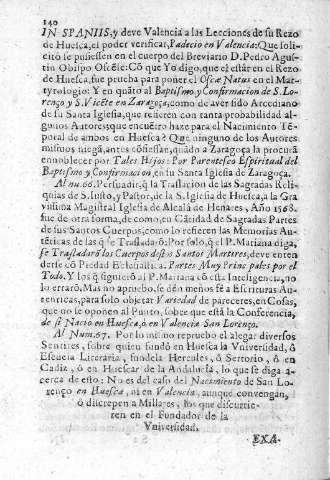 140
IN SPANIIS, y deve Valencia a las Lecciones de su Rezo
de Huesca, el poder verificar, Padecio en Valencia: Que soli-
citò se pusiessen en el cuerpo del Breviario D. Pedro Agus-
tin Obispo Oscēse: Cō que Yo digo, que el estàr en el Rezo
de Huesca, fue prueba para poner el Oscæ Natus en el Mar-
tyrologio: Y en quāto al Baptismo, y Confirmacion de S. Lo-
renço y S. Vicēte en Zaragoça, como de aver sido Arcediano
de su Santa Iglesia, que refieren con tanta probabilidad al-
gunos Autores; que encuētro haze para el Nacimiento Tē-
poral de ambos en Huesca? Que ninguno de los Autores
mismos niega, antes cōfiessan, quādo a Zaragoça la procurā
ennoblecer por Tales Hijos: Por Parentesco Espiritual del
Baptismo y Confirmacion, en su Santa Iglesia de Zaragoça.
Al nu. 66. Persuadir, q̄ la Traslacion de las Sagradas Reli-
quias de S. Iusto, y Pastor, de la S. Iglesia de Huesca, a la Gra
vissima Magistral Iglesia de Alcalà de Henares, Año 1568.
fue de otra forma, de como, en Cātidad de Sagradas Partes
de sus Santos Cuerpos, como lo refieren las Memorias Au-
tēticas de las q̄ se Trasladarō: Por solo, q̄ el P. Mariana diga,
se Trasladarō los Cuerpos destos Santos Martires, deve enten-
derse cō Piedad Eclesiastica. Partes Muy Principales por el
Todo. Y los q̄ siguierō al P. Mariana cō esta Inteligencia, no
lo errarō. Mas no apruebo, se dèn menos fè a Escrituras Au-
tenticas, para solo objetar Variedad de pareceres, en Cosas,
que no se oponen al Punto, sobre que està la Conferencia,
de si Naciò en Huesca, ò en Valencia San Lorenço.
Al Num. 67. Por lo mismo repruebo el alegar diversos
Sentires, sobre quien fundò en Huesca la Vniversidad, ò
Escuela Literaria, fundela Hercules, ò Sertorio, ò en
Cadiz, ò en Huescar de la Andalucia, lo que se diga a-
cerca de esto: No es del caso del Nacimiento de San Lo-
renço en Huesca, ni en Valencia, aunque convengan,
ò discrepen a Millares, los que discurrie-
ren en el Fundador de la
Vniversidad.
EXA-